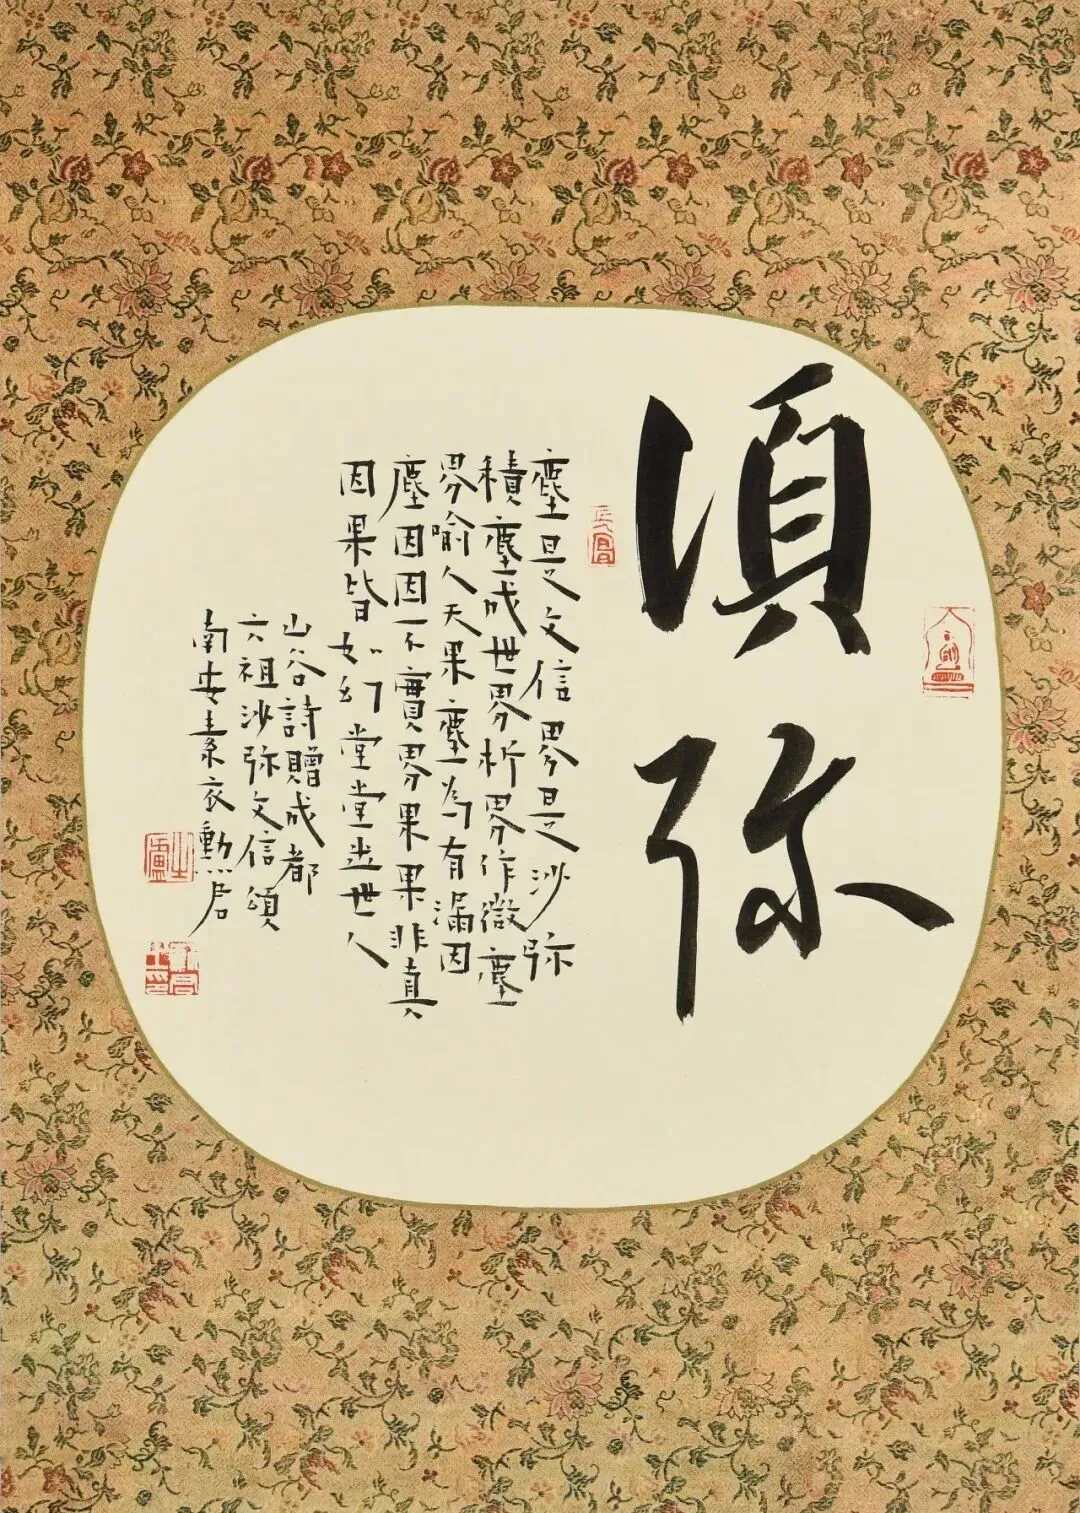 須弥
塵是文信界是沙弥
積塵成世界析界作微塵
界喻人天果塵為有漏因
塵因因不實界果果非真
因果皆如幻堂堂出世人
山谷詩贈成都
六祖沙弥文信頌
南安素衣勳君